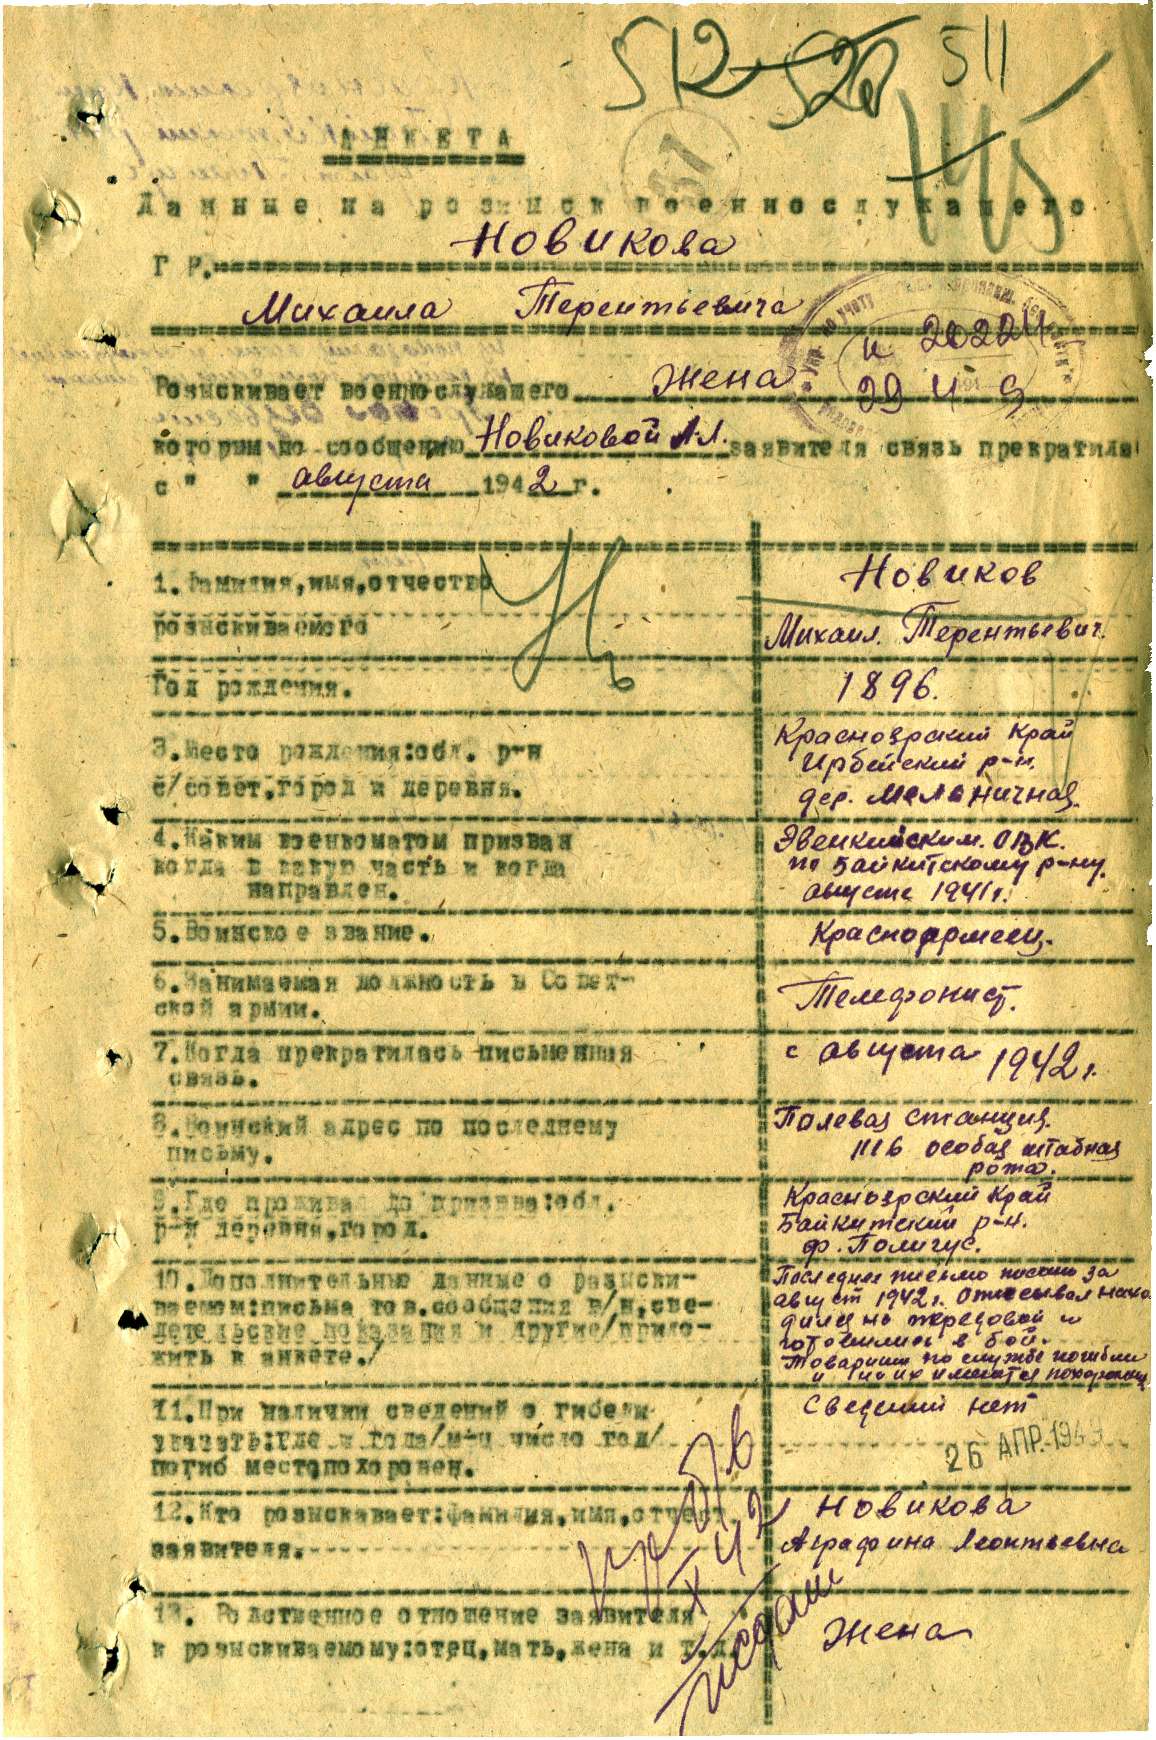 512 520 511
145
АНКЕТА
37
Данные на розыск военнослужащего
Новикова
Г Р.
Михаила Терентьевича
Упр. по учету
и 20224
29 4 9
Розыскивает военнослужащего Жена
которым по сообщению Новиковой А.Л. заявителя связь прекратила
с " " августа 1942 г.
1.Фамилия,имя,отчество
розыскиваемого
Новиков
Михаил. Терентьевич.
Год рождения.
1896.
3.Место рождения:обл. р-н
с/совет,город и деревня.
Красноярский Край
Ирбейский р-н.
дер. Мельничная.
4.Каким военкоматом призван
когда в какую часть и когда
направлен.
Эвенкийским. ОВК.
по Байкитскому р-ну.
августе 1941г.
5.Воинское звание.
Красноармеец.
6.Занимаемая должность в Совет-
ской армии.
Телефонист.
7.Когда прекратилась письменная
связь.
с августа 1942 г.
8.Воинский адрес по последнему
письму.
Полевая станция.
1116 особая штабная
рота.
9.Где проживал до призыва:обл.
р-н деревня,город.
Красноярский Край
Байкитский р-н.
ф. Полигус.
10.Дополнительные данные о разыски-
ваемом:письма тов.сообщения в/ч,сви-
детельские показания и другие/прило-
жить к анкете./
Последнее письмо писано за
август 1942 г. Описывал нахо
дился на передовой и
готовились в бой.
Товарищи по службе погибли
и на их имеются похоронные
11.При наличии сведений о гибели
указать:где и когда/м-ц число год/
погиб местопохоронен.
Сведений нет
26 АПР.1949
12.Кто розыскивает:фамилия,имя,отчест
заявителя.
Новикова
Аграфина Леонтьевна
13. Родственное отношение заявителя
к розыскиваемому:отец,мать,жена и т.д.
Жена
X 42